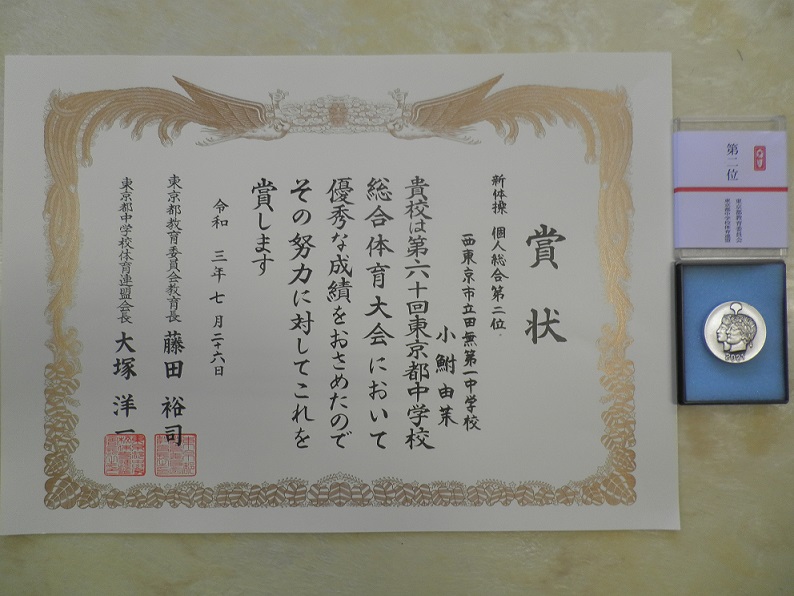 賞状
新体操 個人総合第二位
西東京市立田無第一中学校
小鮒由茉
貴校は第六十回東京都中学校
総合体育大会において
優秀な成績をおさめたので
その努力に対してこれを
賞します
令和三年七月二十六日
東京都教育委員会教育長 藤田裕司
東京都中学校体育連盟会長 大塚洋一
第二位
東京都教育委員会
東京都中学校体育連盟
2021